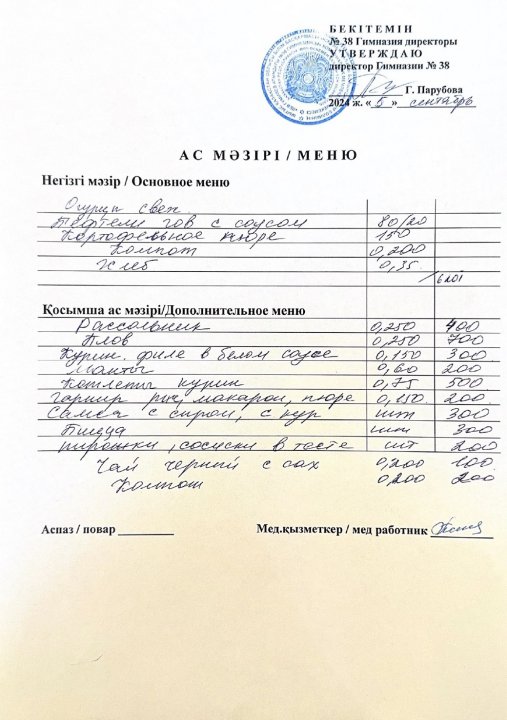 БЕКІТЕМІН
№ 38 Гимназия директоры
УТВЕРЖДАЮ
директор Гимназии № 38
Г. Парубова
2024 ж. « 5 » сентябрь
АС МӘЗІРІ / МЕНЮ
Негізгі мәзір / Основное меню
Огурцы свеж
Тефтели гов с соусом 80/20
Картофельное пюре 150
Компот 0,200
Хлеб 0,35.
Қосымша ас мәзірі/Дополнительное меню
Рассольник 0,250 400
Плов 0,250 700
Курин. филе в белом соусе 0,150 300
Манты 0,60 200
Котлеты курин 0,75 500
Гарнир рис, макарон, пюре 0,150. 200
Самса с сыром, с кур шт 300
Пицца шт 300
пирожки, сосиски в тесте шт 200
Чай черный с сах 0,200 100
Компот 0,200 200
Аспаз / повар
Мед.қызметкер / мед работник